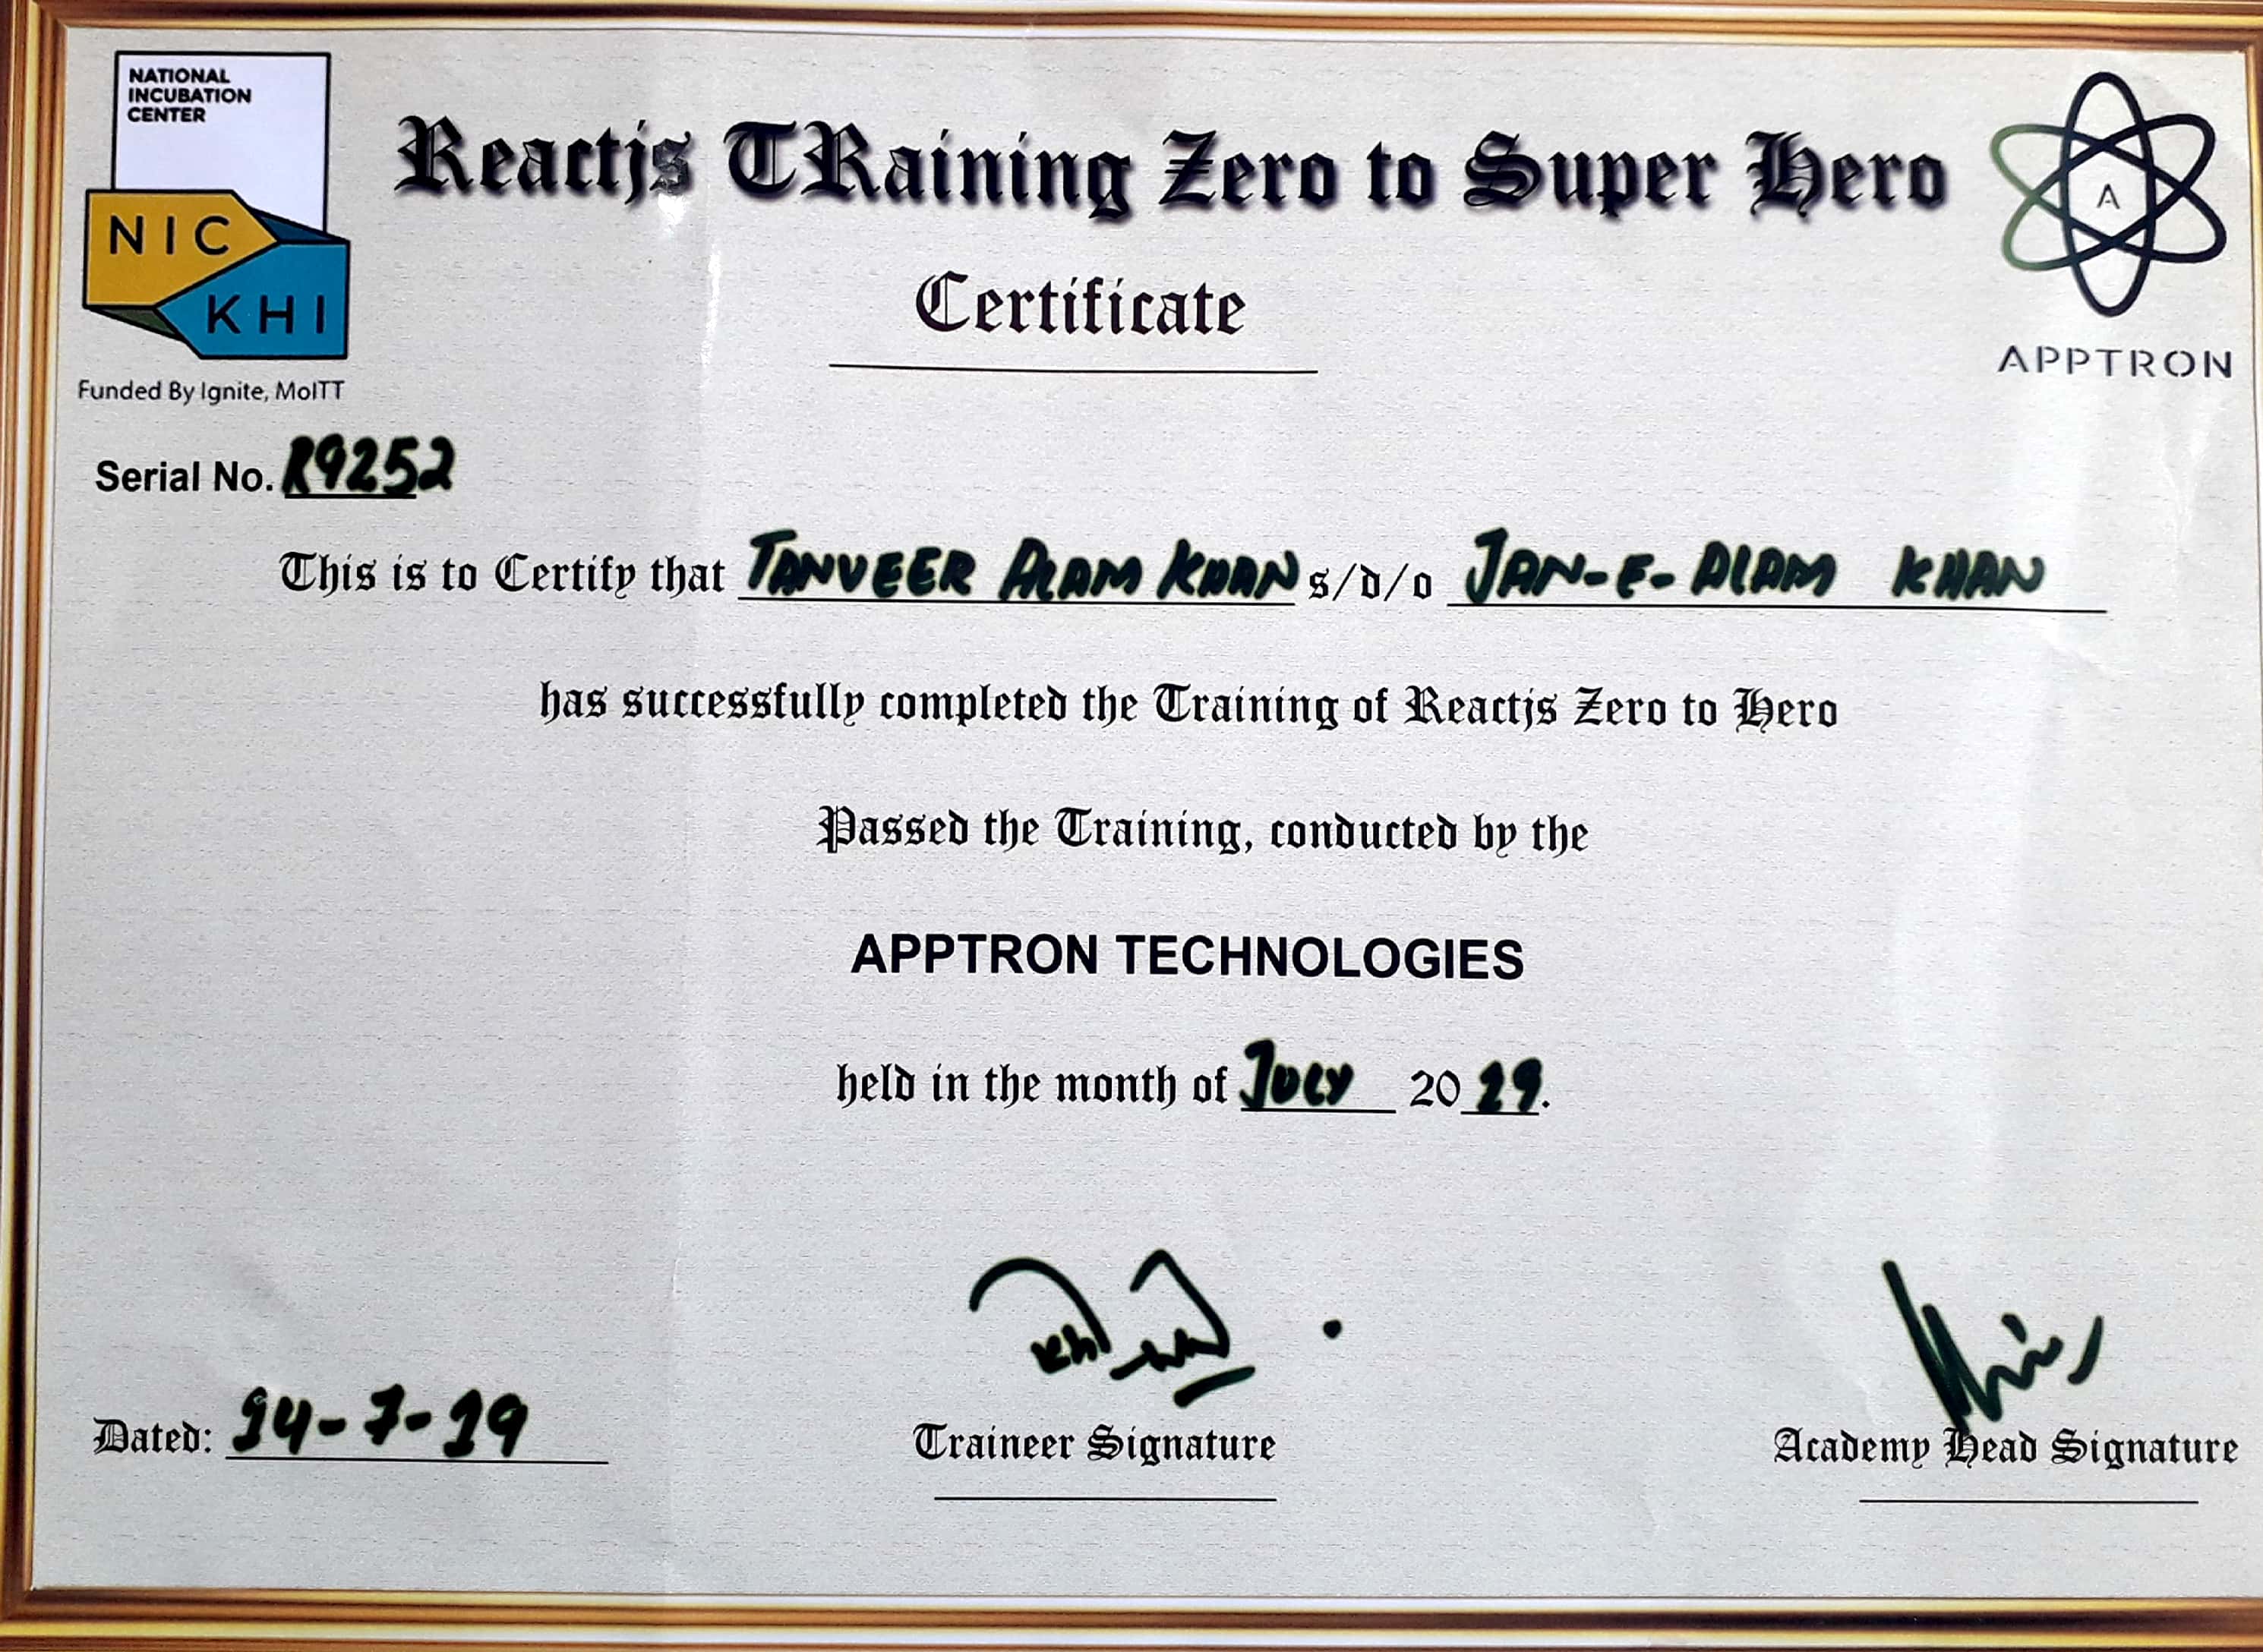 NATIONAL
INCUBATION
CENTER
NIC
KHI
Funded By Ignite, MoITT
Reactjs TRaining Zero to Super Hero
Certificate
A
APPTRON
Serial No. R9252
This is to Certify that TANVEER ALAM KHAN s/d/o JAN-E-ALAM KHAN
has successfully completed the Training of Reactjs Zero to Hero
Passed the Training, conducted by the
APPTRON TECHNOLOGIES
held in the month of JULY 2019.
Dated: 14-7-19
Traineer Signature
Academy Head Signature